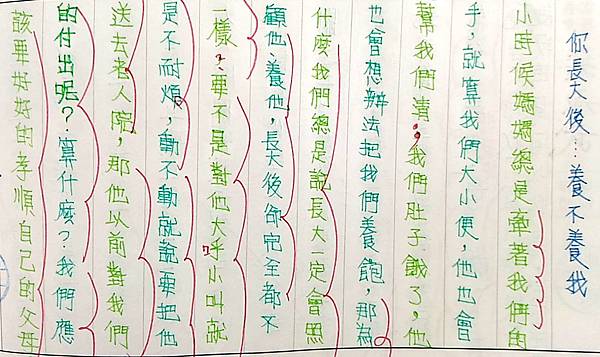 你長大後:養不養我
小時候媽媽總是牽著我們的
手,就算我們大小便,他也會
幫我們清;我們肚子餓了,他
也會想辦法把我們養飽,那為
什麼我們總是說長大一定會照
顧他、養他,長大後卻完全都不
一樣?要不是對他大呼小叫就
是不耐煩,動不動就說要把他
送去老人院,那他以前對我們
的付出呢?算什麼?我們應
該要好好的孝順自己的父母